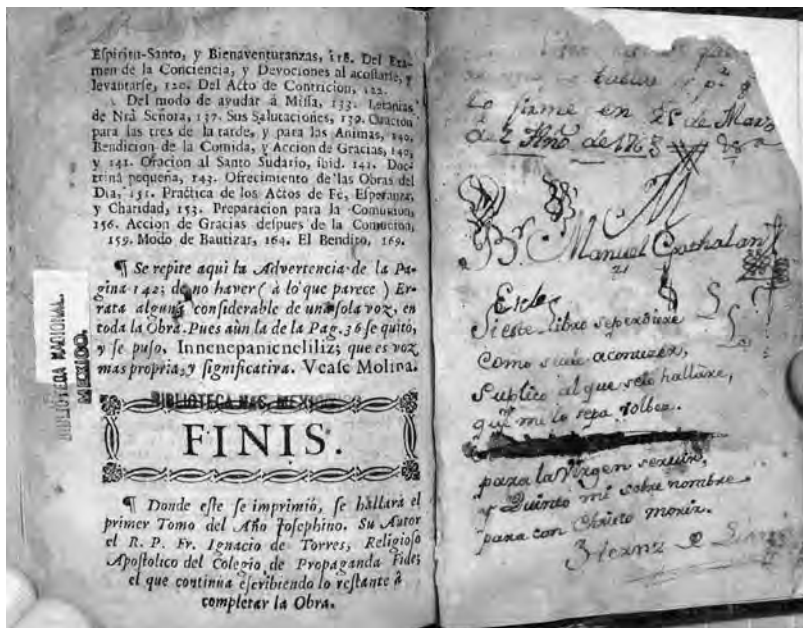 Eſpiritu-Santo, y Bienaventuranzas, 118. Del Exa-
men de la Conciencia, y Devociones al acoſtarſe, y
levantarſe, 120. Del Acto de Contricion, 122.
Del modo de ayudar á Miſſa, 133. Letanias
de Nrâ Señora, 137. Sus Salutaciones, 139. Oracion
para las tres de la tarde, y para las Animas, 140.
Bendicion de la Comida, y Accion de Gracias, 140,
y 141. Oracion al Santo Sudario, ibid. 141. Doc-
trina pequeña, 143. Ofrecimiento de las Obras del
Dia, 151. Practica de los Actos de Fé, Eſperanza,
y Charidad, 153. Preparacion para la Comunion,
156. Accion de Gracias deſpues de la Comunion,
159. Modo de Bautizar, 164. El Bendito, 169.
¶ Se repite aqui la Advertencia de la Pa-
gina 142; de no haver ( á lo que parece ) Er-
rata alguna conſiderable de una ſola voz, en
toda la Obra. Pues aun la de la Pag. 36 ſe quitó,
y ſe puſo, Innenepanicneliliz; que es voz
mas propria, y ſignificativa. Veaſe Molina.
BIBLIOTECA NAC. MEXICO
FINIS.
¶ Donde eſte ſe imprimió, ſe hallará el
primer Tomo del Año Joſephino. Su Autor
el R. P. Fr. Ignacio de Torres, Religioſo
Apoſtolico del Colegio de Propaganda Fide;
el que continúa eſcribiendo lo reſtante á
completar la Obra.
BIBLIOTECA NACIONAL
MEXICO.
lo firme en 25 de Marzo
de Año de 1763
Br. Manuel Cathalan
Si este libro seperdiere
Como suele acontezer,
Suplico al que selo hallare,
que me lo sepa bolber.
para la Virgen
y Quinto mi sobre nombre
para con Christo morir.